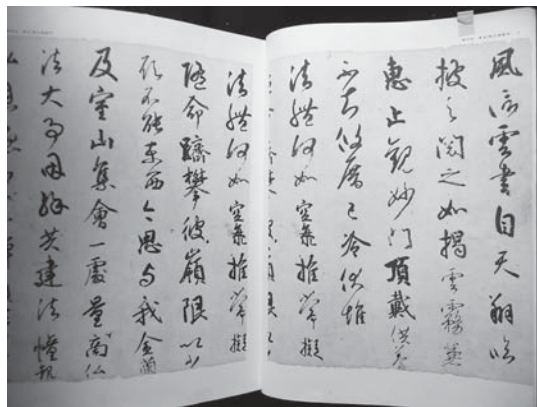 風信雲書自天翔臨
披之閲之如揭雲霧兼
惠止觀妙門頂戴供養
不知攸厝已冷伏惟
法體何如空海推常擬
法體何如空海推常擬
随命躋攀彼嶺限以少
願不能東西今思与我金蘭
及室山集會一處量商仏
法大事因縁共建法幢報